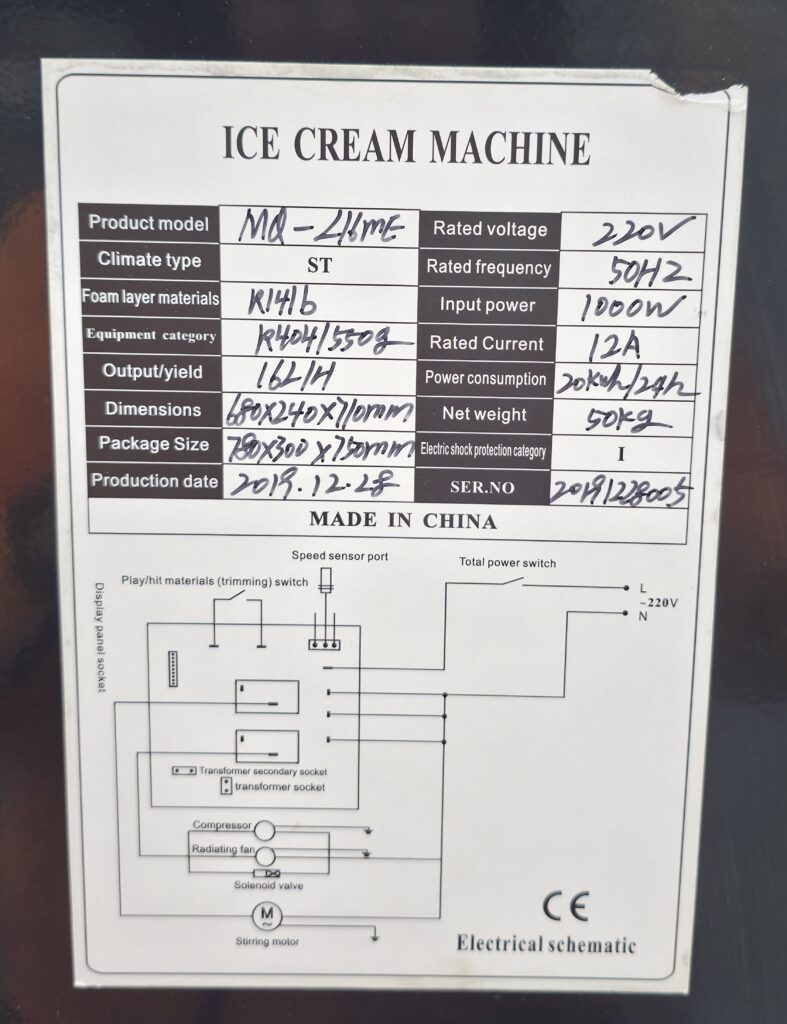 ICE CREAM MACHINE
Product model MQ-L16ME Rated voltage 220V
Climate type ST Rated frequency 50HZ
Foam layer materials R141b Input power 1000W
Equipment category R404/550g Rated Current 12A
Output/yield 16L/H Power consumption 20Kwh/24h
Dimensions 680X240X710mm Net weight 50Kg
Package Size 780X300X750mm Electric shock protection category I
Production date 2019.12.28 SER.NO 20191228005
MADE IN CHINA
Speed sensor port
Total power switch
Play/hit materials (trimming) switch
L
~220V
N
Display panel socket
Transformer secondary socket
transformer socket
Compressor
Radiating fan
Solenoid valve
M
~
Stirring motor
CE
Electrical schematic